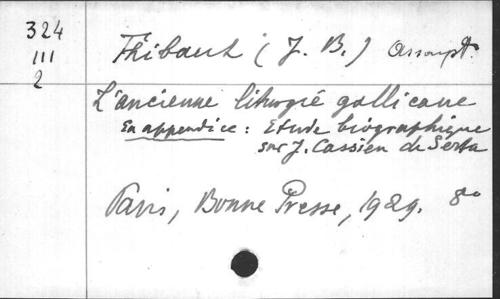 324
III
2
Thibaut (J. B.) Assompt.
L'ancienne liturgie gallicane
En appendice : Etude biographique
sur J. Cassien de Serta
Paris, Bonne Presse, 1929. 8°